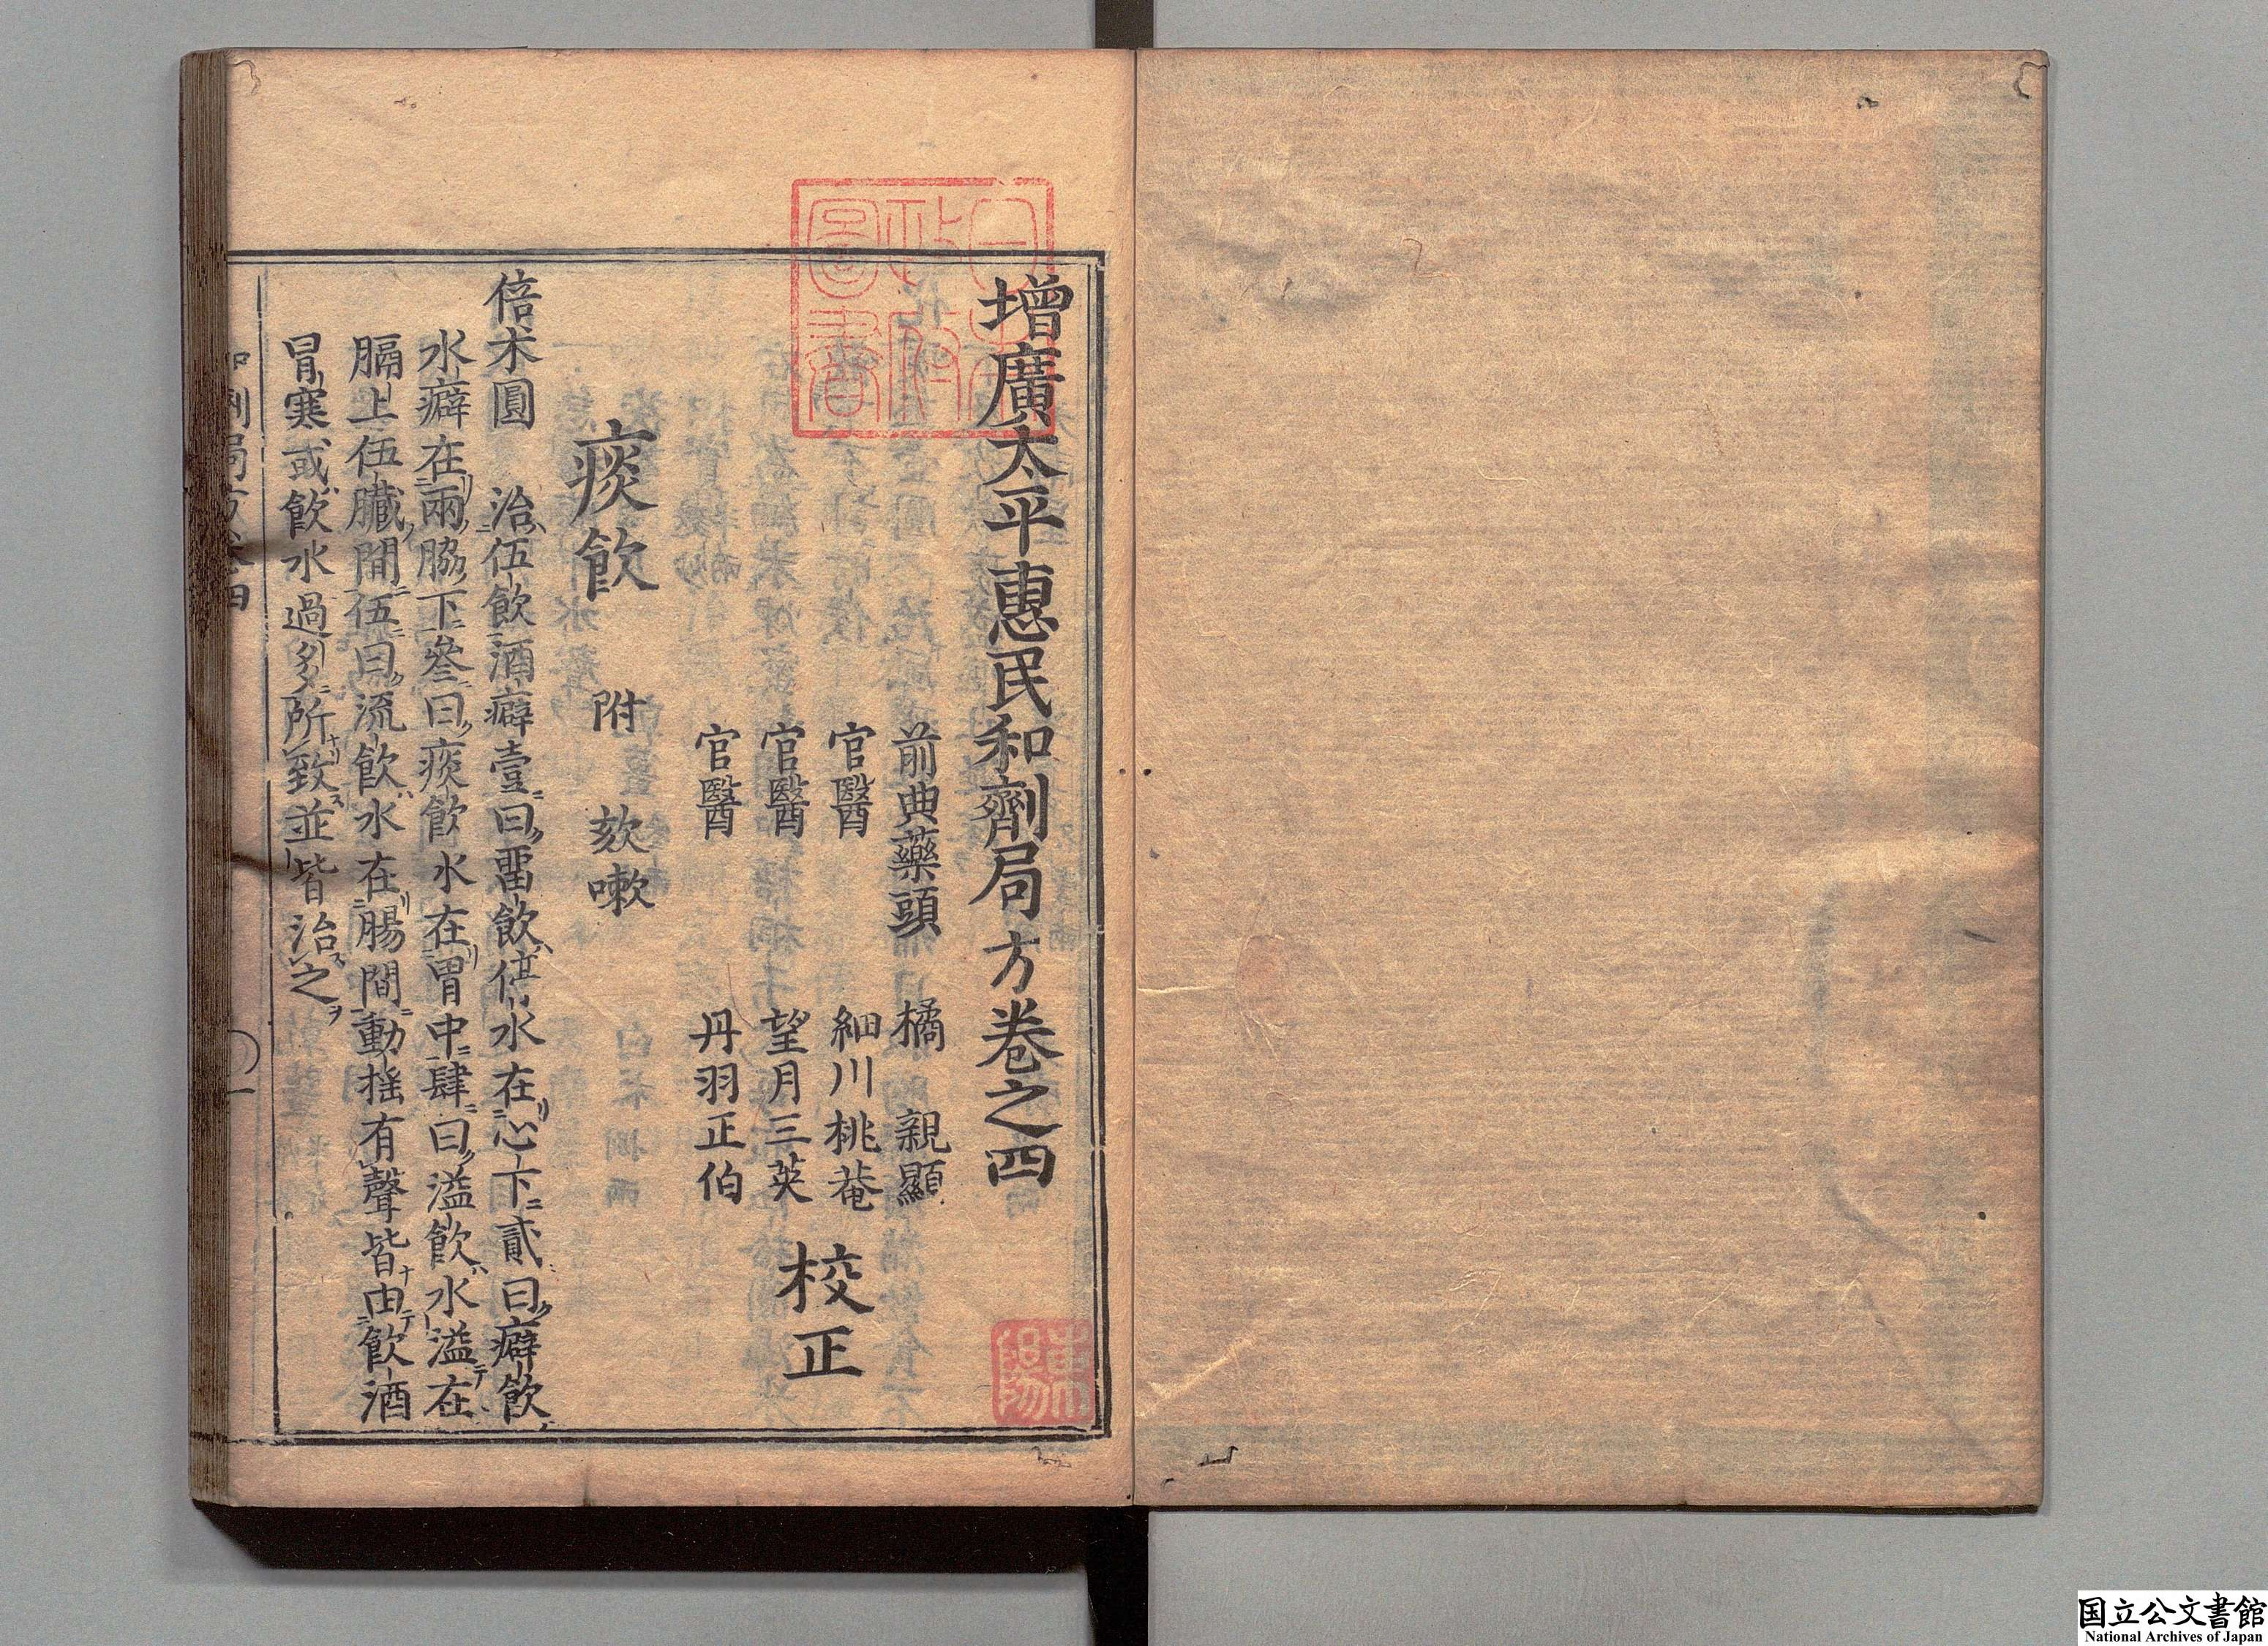 增廣太平惠民和劑局方卷之四
前典藥頭 橘 親顯
官醫 細川桃菴
官醫 望月三英
官醫 丹羽正伯
校正
痰飲 附 欬嗽
倍朮圓 治伍飲酒癖壹曰畱飲停水在心下貳曰癖飲
水癖在兩脇下叄曰痰飲水在胃中肆曰溢飲水溢在
膈上伍臟間伍曰流飲水在腸間動搖有聲皆由飲酒
冒寒或飲水過多所致並皆治之
和劑局方卷四 一
日本政府圖書
国立公文書館
National Archives of Japan